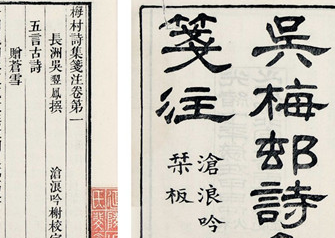 吳梅邨詩
箋注
滄浪吟
栞板
梅村詩集箋注卷第一
長洲吳翌鳳撰
滄浪吟榭校定
五言古詩
贈蒼雪